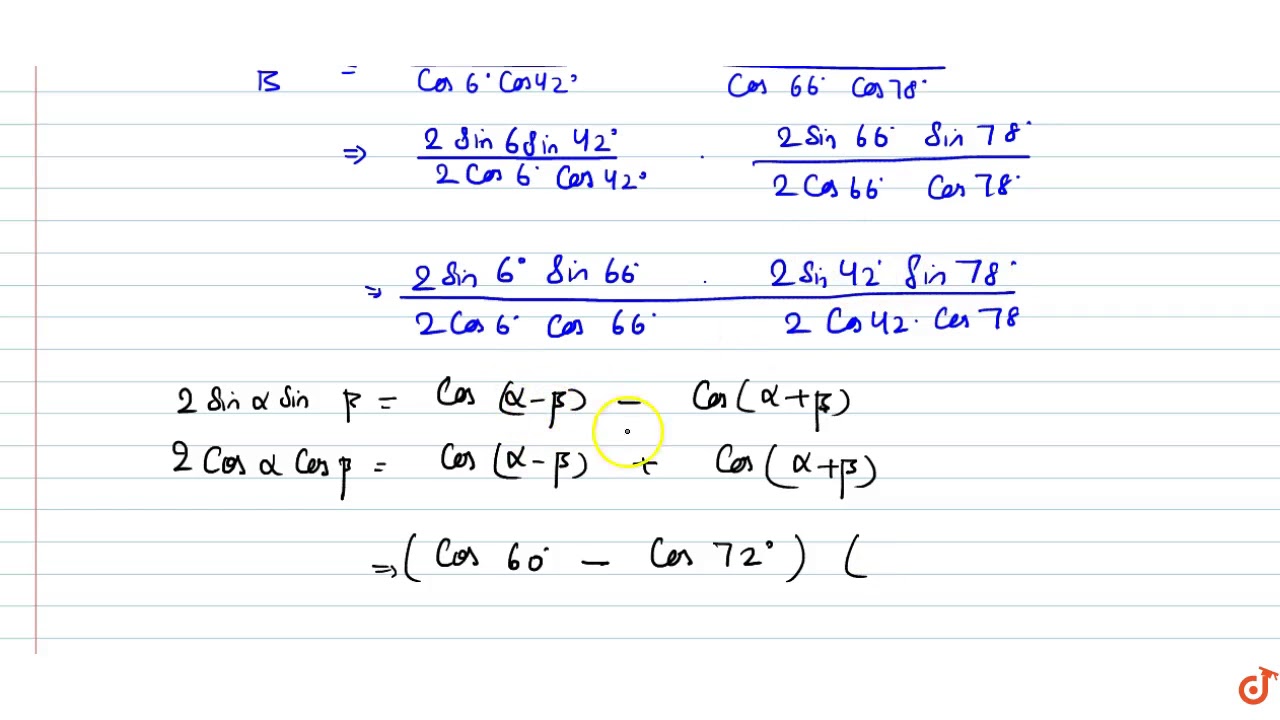 B = Cos 6° Cos 42° Cos 66° Cos 78°
⇒ 2 Sin 6 Sin 42° / 2 Cos 6° Cos 42° . 2 Sin 66° Sin 78° / 2 Cos 66° Cos 78°
⇒ 2 Sin 6° Sin 66° . 2 Sin 42° Sin 78° / 2 Cos 6° Cos 66° 2 Cos 42° Cos 78
2 Sin α Sin β = Cos (α - β) - Cos (α + β)
2 Cos α Cos β = Cos (α - β) + Cos (α + β)
⇒ ( Cos 60° - Cos 72° ) (